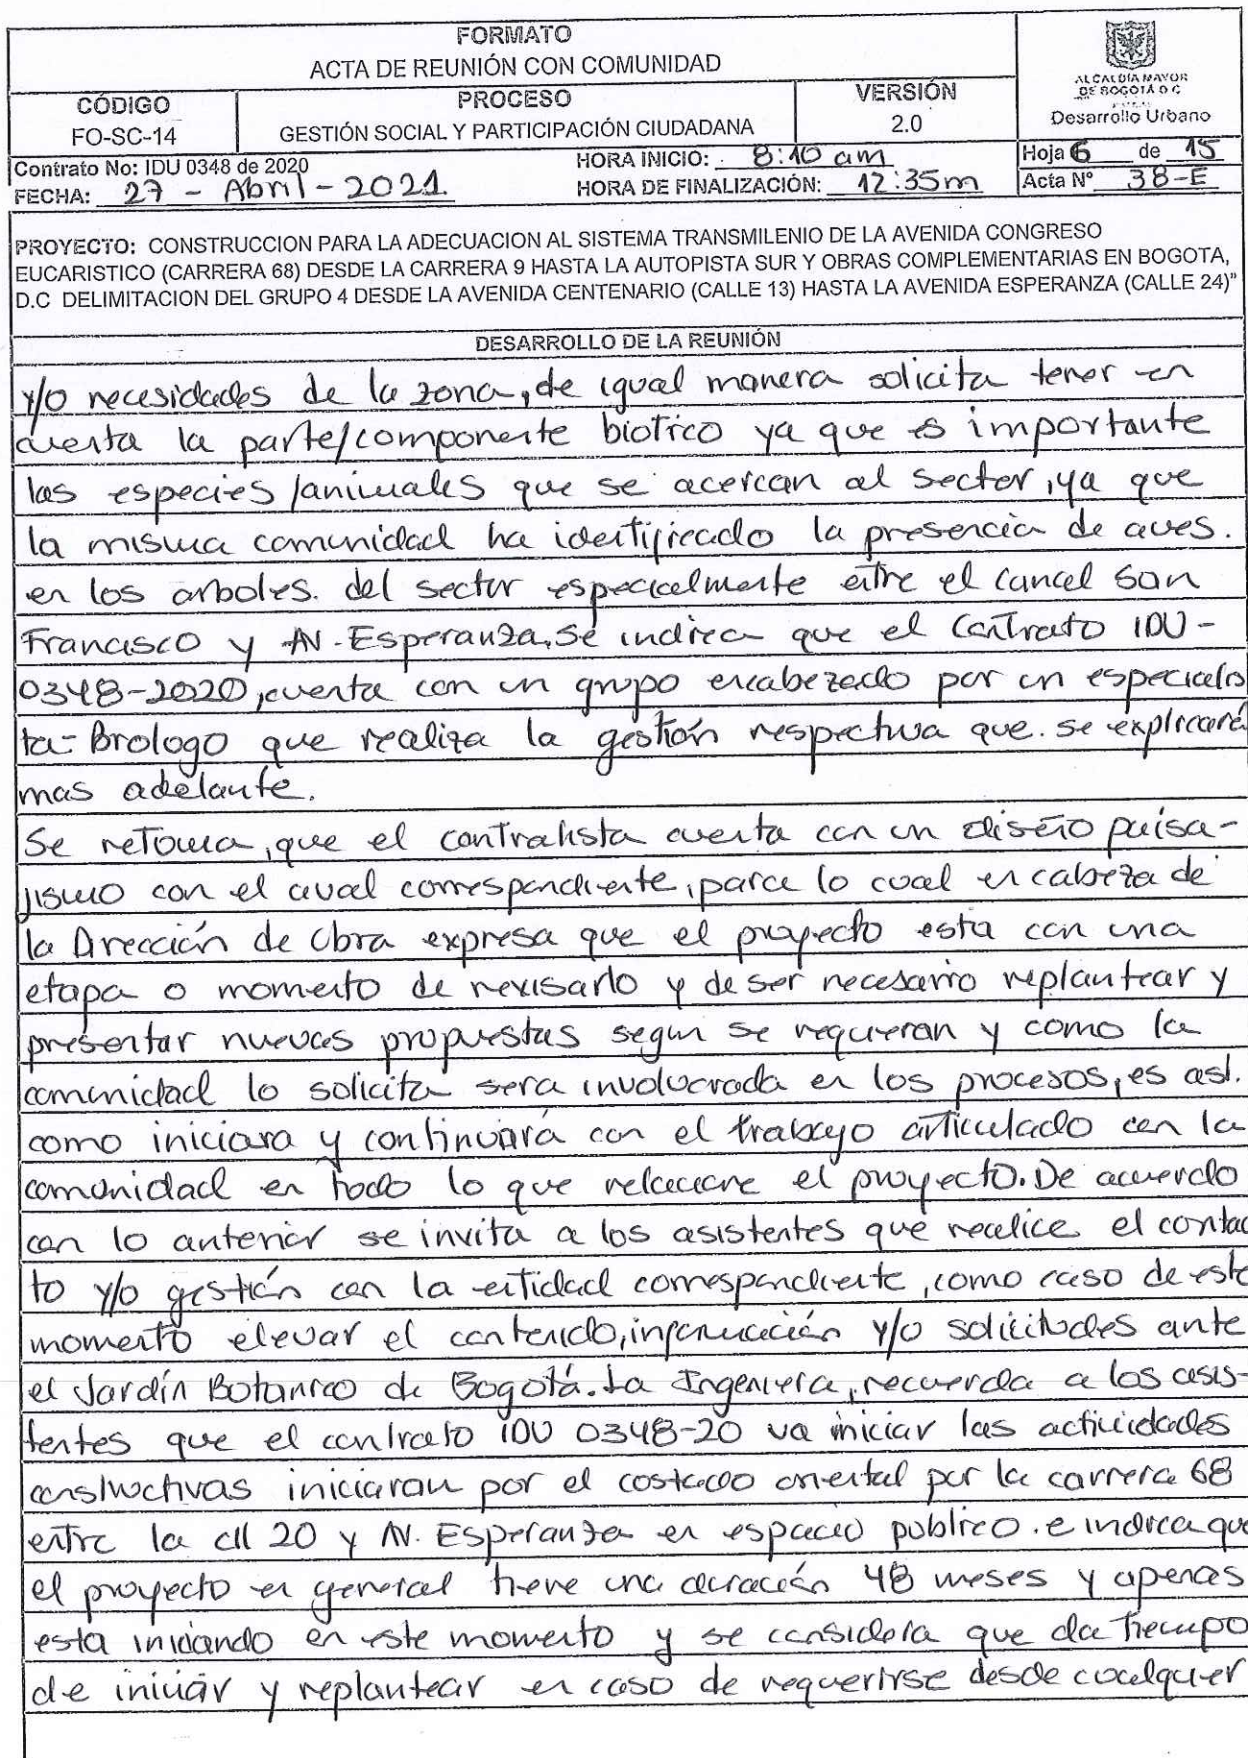 FORMATO
ACTA DE REUNIÓN CON COMUNIDAD
CÓDIGO
FO-SC-14
PROCESO
GESTIÓN SOCIAL Y PARTICIPACIÓN CIUDADANA
VERSIÓN
2.0
ALCALDÍA MAYOR
DE BOGOTÁ D.C.
Desarrollo Urbano
Contrato No: IDU 0348 de 2020
FECHA: 27 - Abril - 2021.
HORA INICIO: 8:10 am
HORA DE FINALIZACIÓN: 12:35m
Hoja 6 de 15
Acta N° 38-E
PROYECTO: CONSTRUCCION PARA LA ADECUACION AL SISTEMA TRANSMILENIO DE LA AVENIDA CONGRESO
EUCARISTICO (CARRERA 68) DESDE LA CARRERA 9 HASTA LA AUTOPISTA SUR Y OBRAS COMPLEMENTARIAS EN BOGOTA,
D.C DELIMITACION DEL GRUPO 4 DESDE LA AVENIDA CENTENARIO (CALLE 13) HASTA LA AVENIDA ESPERANZA (CALLE 24)"
DESARROLLO DE LA REUNIÓN
y/o necesidades de la zona, de igual manera solicita tener en
cuenta la parte/componente biotico ya que es importante
las especies/animales que se acercan al sector, ya que
la misma comunidad ha identificado la presencia de aves.
en los arboles. del sector especialmente entre el canal San
Francisco y AV. Esperanza, Se indica que el Contrato IDU-
0348-2020, cuenta con un grupo encabezado por un especialis
ta- Biologo que realiza la gestión respectiva que. se explicará
mas adelante.
Se retoma, que el contratista cuenta con un diseño paisa-
jismo con el aval correspondiente, para lo cual en cabeza de
la Dirección de Obra expresa que el proyecto esta con una
etapa o momento de revisarlo y de ser necesario replantear y
presentar nuevas propuestas segun se requieran y como la
comunidad lo solicita sera involucrada en los procesos, es asi.
como iniciara y continuará con el trabajo articulado con la
comunidad en todo lo que relacione el proyecto. De acuerdo
con lo anterior se invita a los asistentes que realice el contac
to y/o gestión con la entidad correspondiente, como caso de este
momento elevar el contenido, información y/o solicitudes ante
el Jardín Botanico de Bogotá. La Ingeniera, recuerda a los asis-
tentes que el contrato IDU 0348-20 va iniciar las actividades
constructivas iniciaran por el costado oriental por la carrera 68
entre la cll 20 y AV. Esperanza en espacio publico. e indica que
el proyecto en general tiene una duración 48 meses y apenas
esta iniciando en este momento y se considera que da tiempo
de iniciar y replantear en caso de requerirse desde cualquier